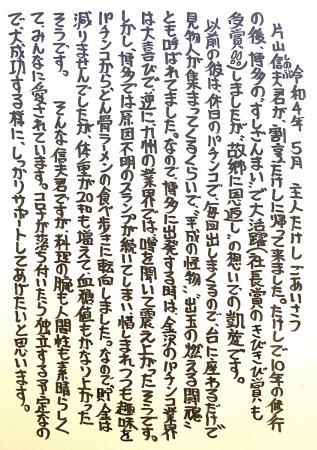 令和4年 5月 主人たけし ごあいさつ
片山信夫君が、"割烹たけし"に帰って来ました。たけしで10年の修行
の後、博多の"すしざんまい"で大活躍(社長賞のきびきび賞も
受賞)しましたが"故郷に恩返し"の想いでの凱旋です。
以前の彼は、休日のパチンコで、毎回出しまくるので、台に座るだけで
見物人が集まってくるくらいで、"平成の怪物""出玉の燃える闘魂"
とも呼ばれてました。なので、博多に出発する時は、金沢のパチンコ業界
は大喜びで、逆に九州の業界では、噂を聞いて震え上がったそうです。
しかし、博多では原因不明のスランプが続いてしまい、惜しまれつつも趣味を
パチンコからとん骨ラーメンの食べ歩きに転向しました。なので、貯金は
減りませんでしたが、体重が20キロも増えて、血糖値もかなり上がった
そうです。 そんな信夫君ですが、料理の腕も人間性も素晴らしく
て、みんなに愛されています。コロナが落ち付いたら独立する予定なの
で、大成功する様に、しっかりサポートしてあげたいと思います。